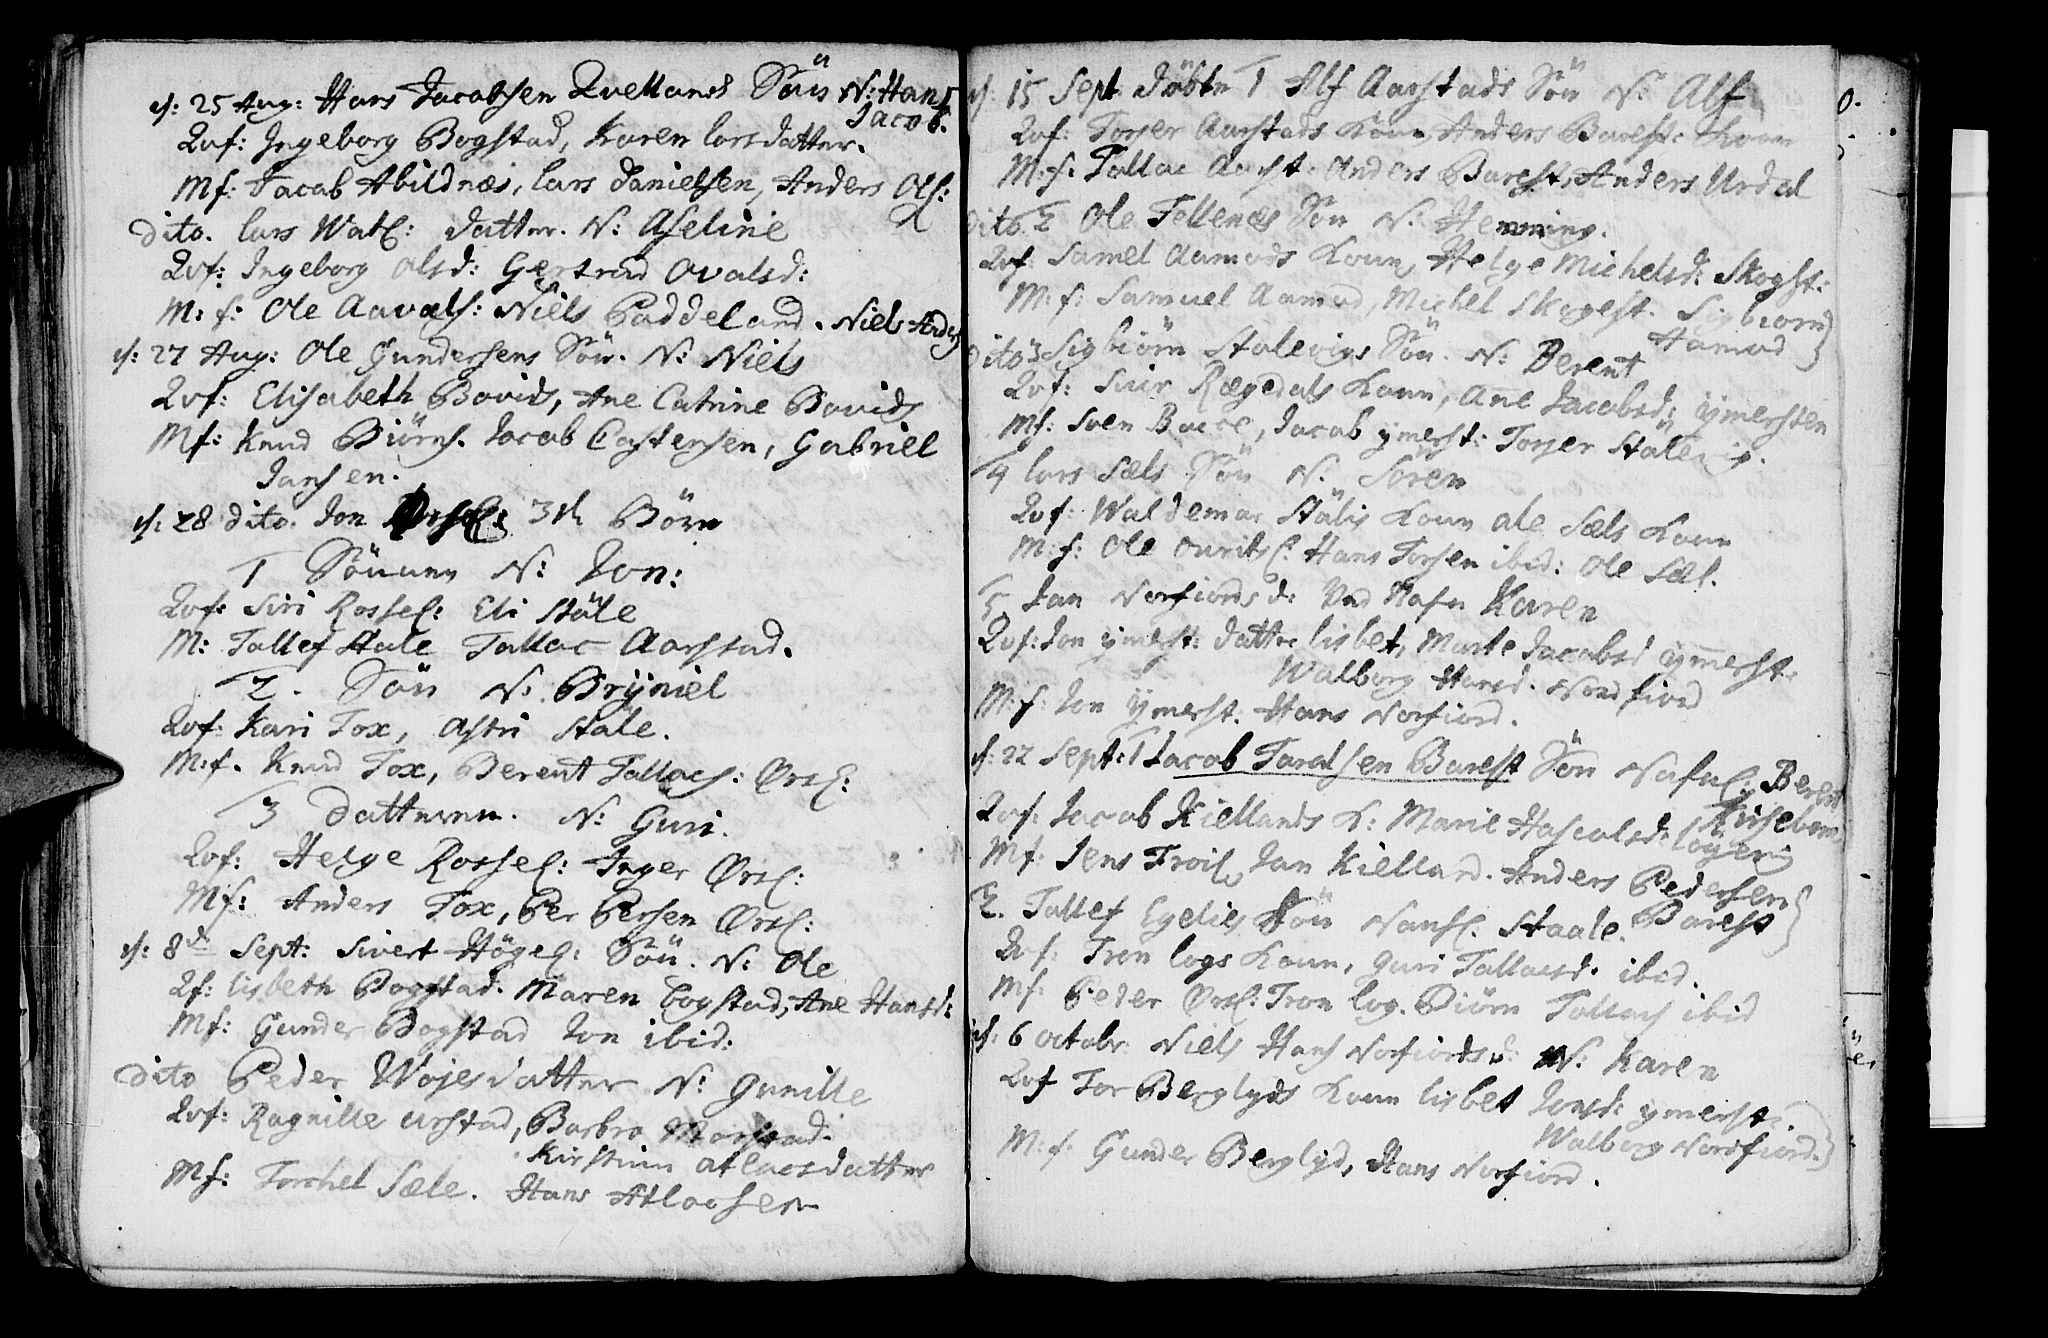 d: 25 Aug: Hans Jacobsen Qvellands Sön N: Hans
Jacob.
Qvf: Ingeborg Bogstad, Karen Larsdatter.
Mf: Jacob Abildnæs, Lars Danielsen, Anders Ols:
dito. Lars Watl: datter. N: Aseline
Qvf: Ingeborg Olsd: Gertrud Ovalsd:
M: f: Ole Aavals: Niels Paddeland. Niels Anders
d: 27 Aug: Ole Gundersens Sön. N: Niels
Qvf: Elisabeth Bovids, Ane Catrine Bovids
Mf: Knud Biörns. Jacob Castensen, Gabriel
Jansen.
d: 28 dito. Jon 3de Börn
1 Sönnen N: Jon:
Qvf: Siri Rossel: Eli Ståle
M: Tallef Stale Tallac Aarstad.
2. Sön N: Brÿniel
Qvf: Kari Tox, Astri Stale.
M: f. Knud Tox, Berent Tallacs: Ørsl:
3 datteren. N: Guri.
Qvf: Helge Rossel: Inger Ørsl:
Mf: Anders Tox, Per Persen Ørsl:
d: 8de Sept: Sivert Högel: Sön. N: Ole
Qf: Lisbeth Bogstad. Maren Bogstad, Ane Hansd:
Mf: Gunder Bogstad Jon ibid:
dito Peder Wojes datter N: Gunille
Qvf: Ragnille Urstad, Barbro
Kirstine Atlacsdatter
Mf: Torchel Sæle. Hans Atlacsen
d: 15 Sept Döbte 1 Alf Aarstads Sön N: Alf
Qvf: Torger Aarstads Koun, Anders Barest: Koun
M: f: Tallac Aarst: Anders Barest, Anders Urdal
dito. 2 Ole Fellenæs Sön N: Hemming.
Qvf: Samel Aamods Koun, Helge Michelsd: Skogst:
M: f: Samuel Aamod, Michel Skogest. Sigbiörn
Hamad
dito 3 Sigbiörn Stalevigs Sön. N: Berent
Qvf: Siur Rægedals Koun, Ane Jacobsd: Ymersten
Mf: Sven Bacce, Jacob Ymerst: Torger Stalevig.
4 Lars Sæls Sön N: Sören
Qvf: Waldemar Stälis Koun Ole Sæls Koun
M: f: Ole Ouritsl: Hans Torsen ibid: Ole Sæl.
5 Jan Norfiords d: Ved Nafn Karen
Qvf: Jon Ymerst: datter Lisbet, Marte Jacobsd Ymerst.
Walborg Hansd. Nordfiord
M: f: Jon Ymerst. Hans Norfiord.
d: 22 Sept: 1 Jacob Taralsen Barest Sön Nafnl: Berent
Qvf. Jacob Kiellands K: Marie Hascalsd:
Mf: Jens Troil, Jan Kielland. Anders Pedersen
Barest
2. Tallef Egelies Sön Nafnl. Staale.
Qvf: Tron Logs Koun, Guri Tallacsd. ibid.
Mf: Peder Ørsl: Tron Log. Biörn Tallacs ibid
d: 6 Octobr: Niels Hans Norfiords d: N: Karen
Qvf Tor Berglyds Koun Lisbet Jonsd: Ymerst:
Walborg Nordfiord.
M: f: Gunder Berglÿd, Hans Norfiord.